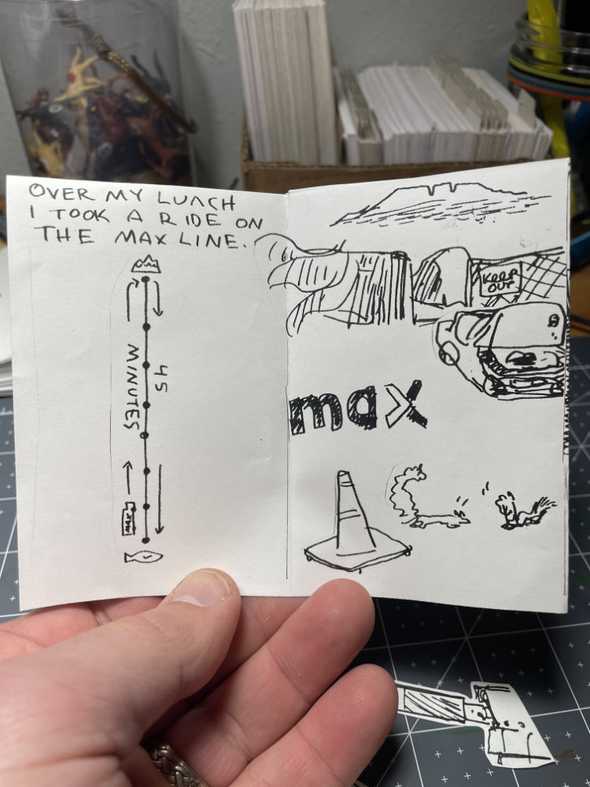 OVER MY LUNCH
I TOOK A RIDE ON
THE MAX LINE.
45
MINUTES
max
KEEP
OUT
max